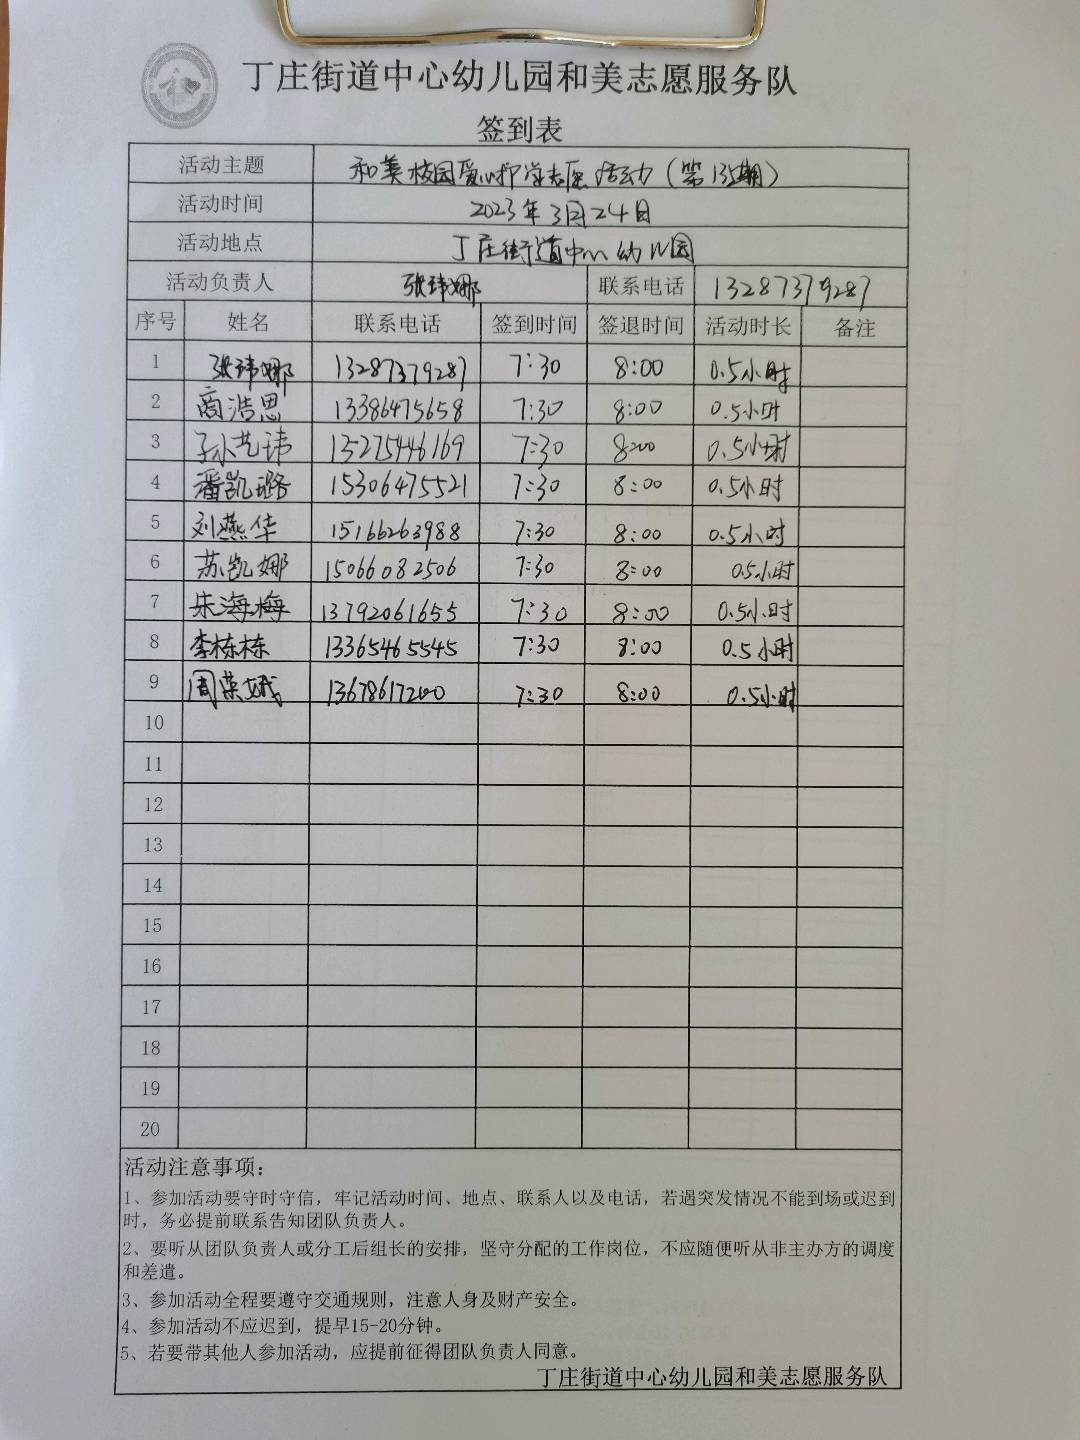 丁庄街道中心幼儿园和美志愿服务队
签到表
活动主题 和美校园爱心护学志愿活动（第135期）
活动时间 2023年3月24日
活动地点 丁庄街道中心幼儿园
活动负责人 张玮娜 联系电话 13287379287
序号 姓名 联系电话 签到时间 签退时间 活动时长 备注
1 张玮娜 13287379287 7:30 8:00 0.5小时
2 商浩思 13386475658 7:30 8:00 0.5小时
3 孙艺玮 13275446169 7:30 8:00 0.5小时
4 潘凯璐 15306475521 7:30 8:00 0.5小时
5 刘燕华 15166263988 7:30 8:00 0.5小时
6 苏凯娜 15066082506 7:30 8:00 0.5小时
7 朱海梅 13792061655 7:30 8:00 0.5小时
8 李栋栋 13365465545 7:30 8:00 0.5小时
9 周荣娥 13678617200 7:30 8:00 0.5小时
10
11
12
13
14
15
16
17
18
19
20
活动注意事项：
1、参加活动要守时守信，牢记活动时间、地点、联系人以及电话，若遇突发情况不能到场或迟到
时，务必提前联系告知团队负责人。
2、要听从团队负责人或分工后组长的安排，坚守分配的工作岗位，不应随便听从非主办方的调度
和差遣。
3、参加活动全程要遵守交通规则，注意人身及财产安全。
4、参加活动不应迟到，提早15-20分钟。
5、若要带其他人参加活动，应提前征得团队负责人同意。
丁庄街道中心幼儿园和美志愿服务队